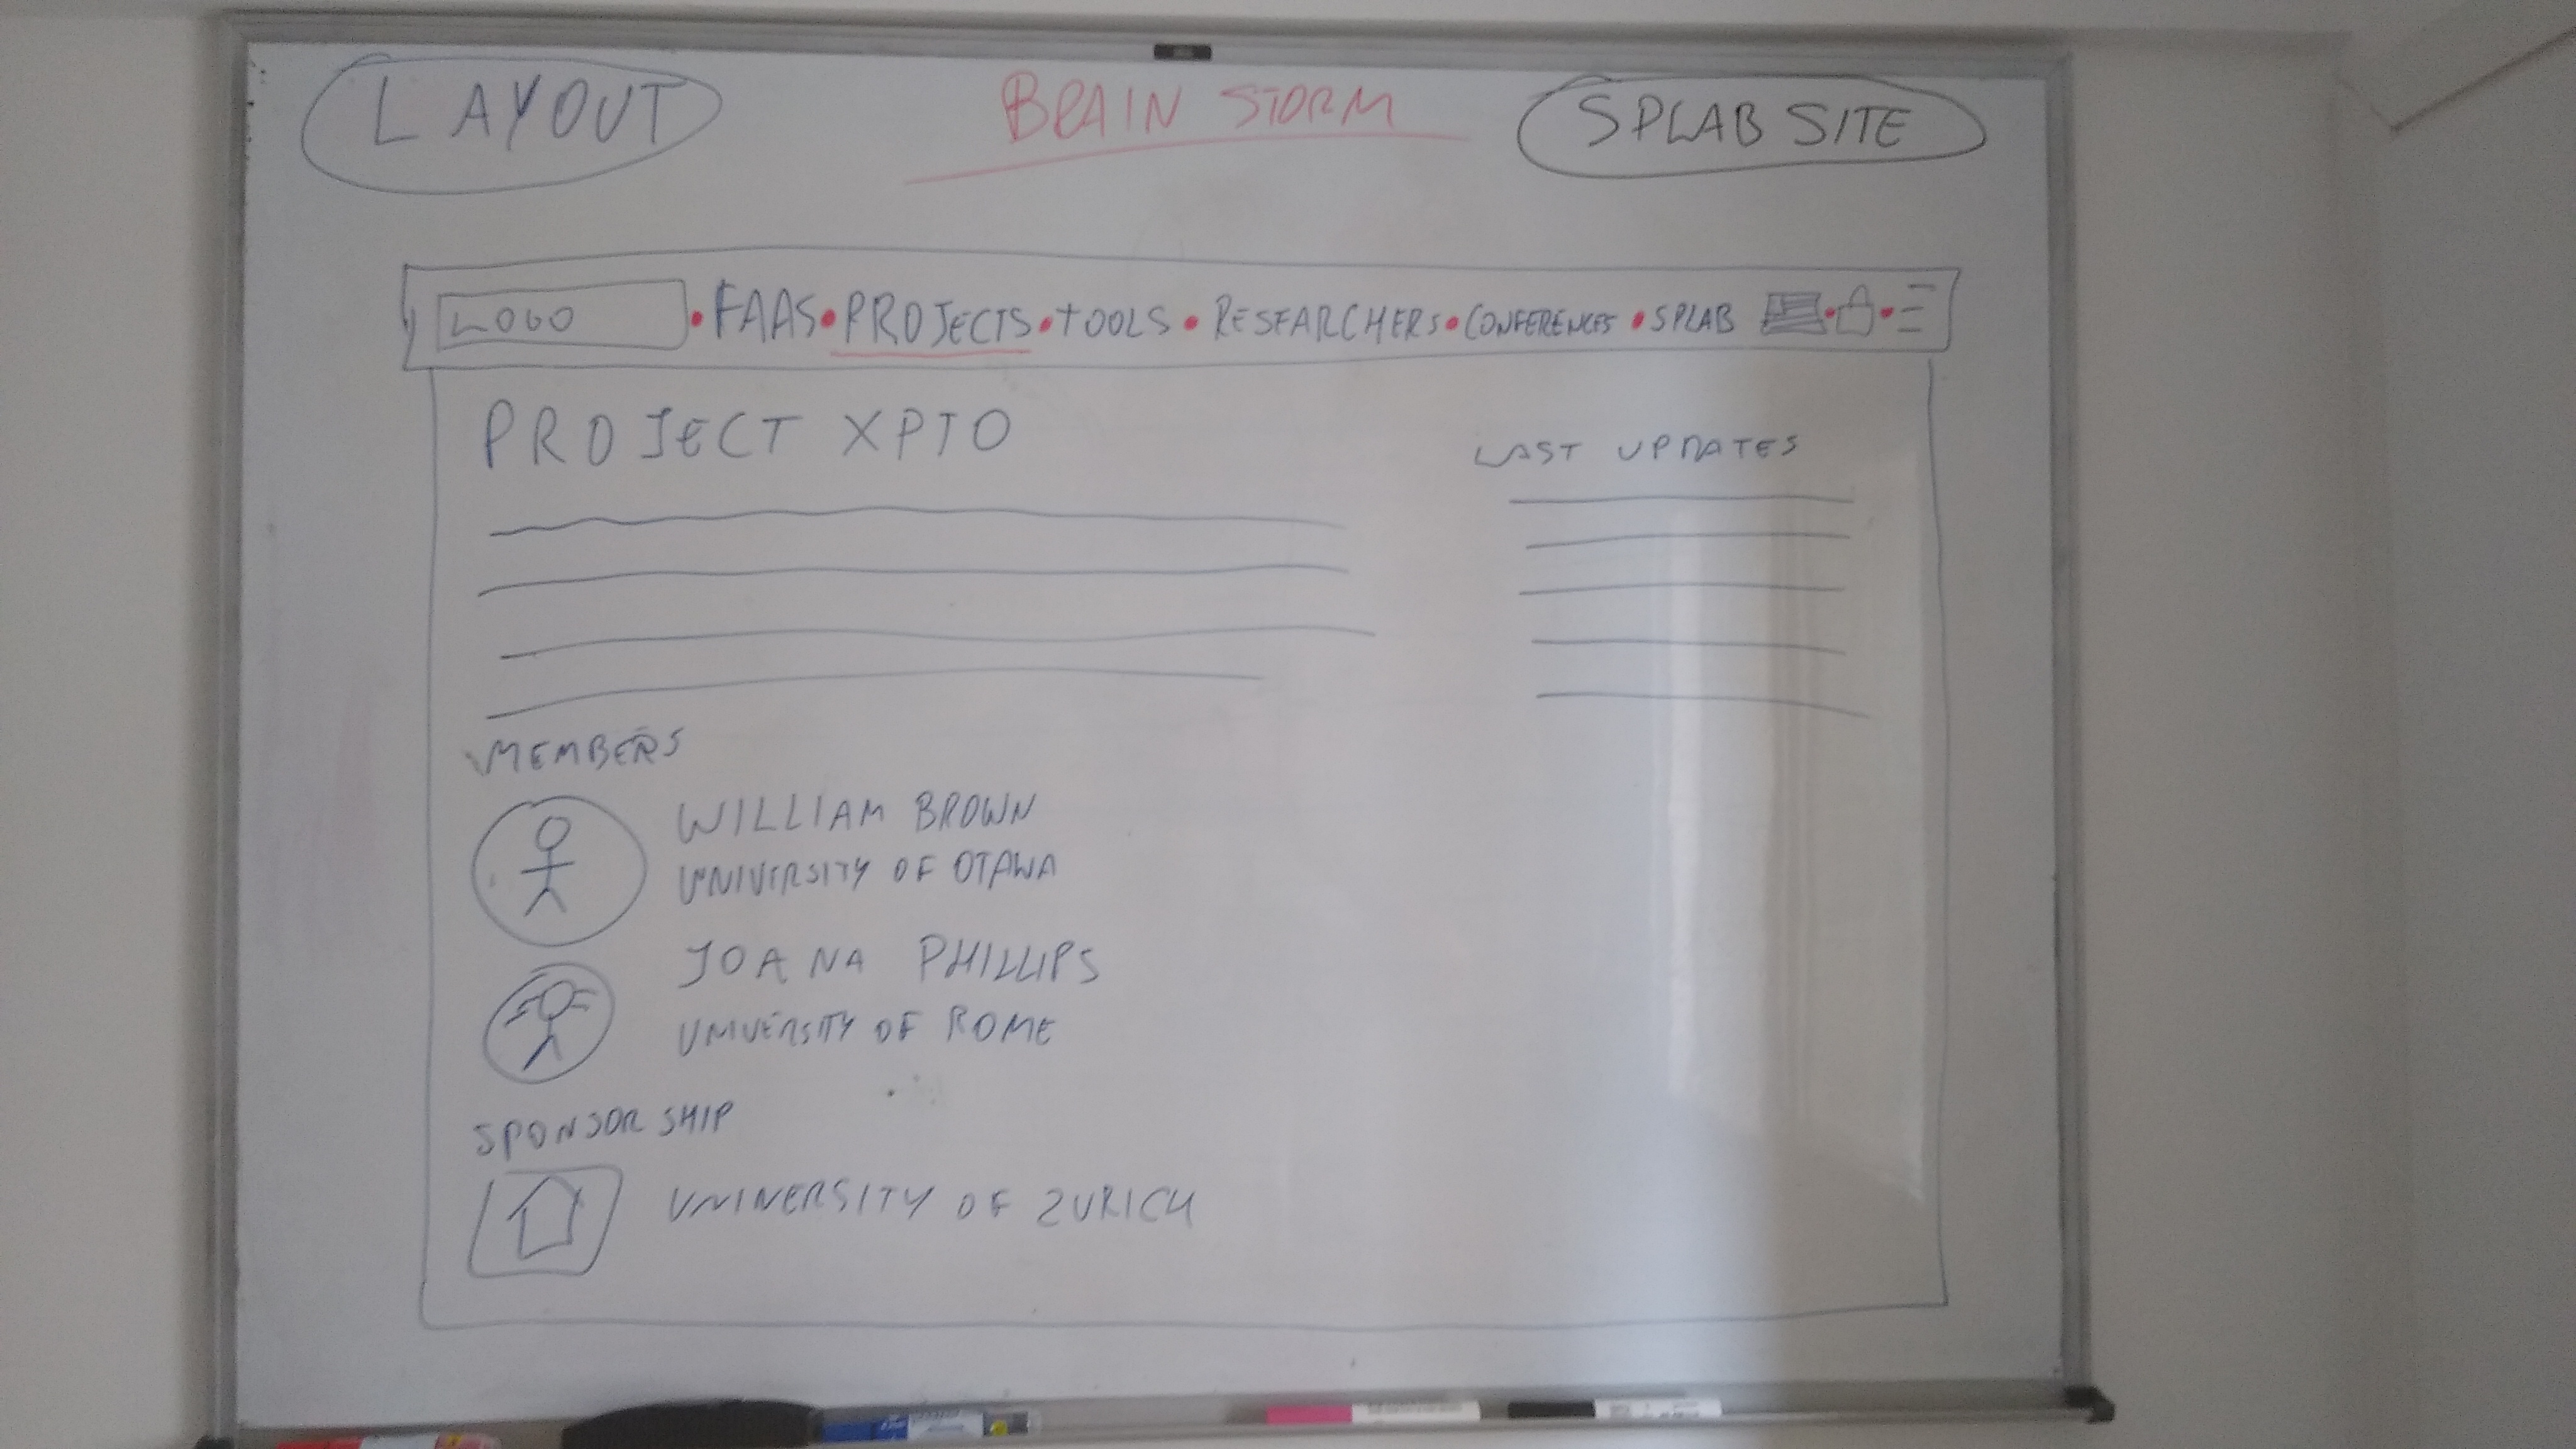 LAYOUT
BRAIN STORM
SPLAB SITE
LOGO • FAAS • PROJECTS • TOOLS • RESEARCHERS • CONFERENCES • SPLAB
PROJECT XPTO
LAST UPDATES
MEMBERS
WILLIAM BROWN
UNIVERSITY OF OTAWA
JOANA PHILLIPS
UNIVERSITY OF ROME
SPONSORSHIP
UNIVERSITY OF ZURICH